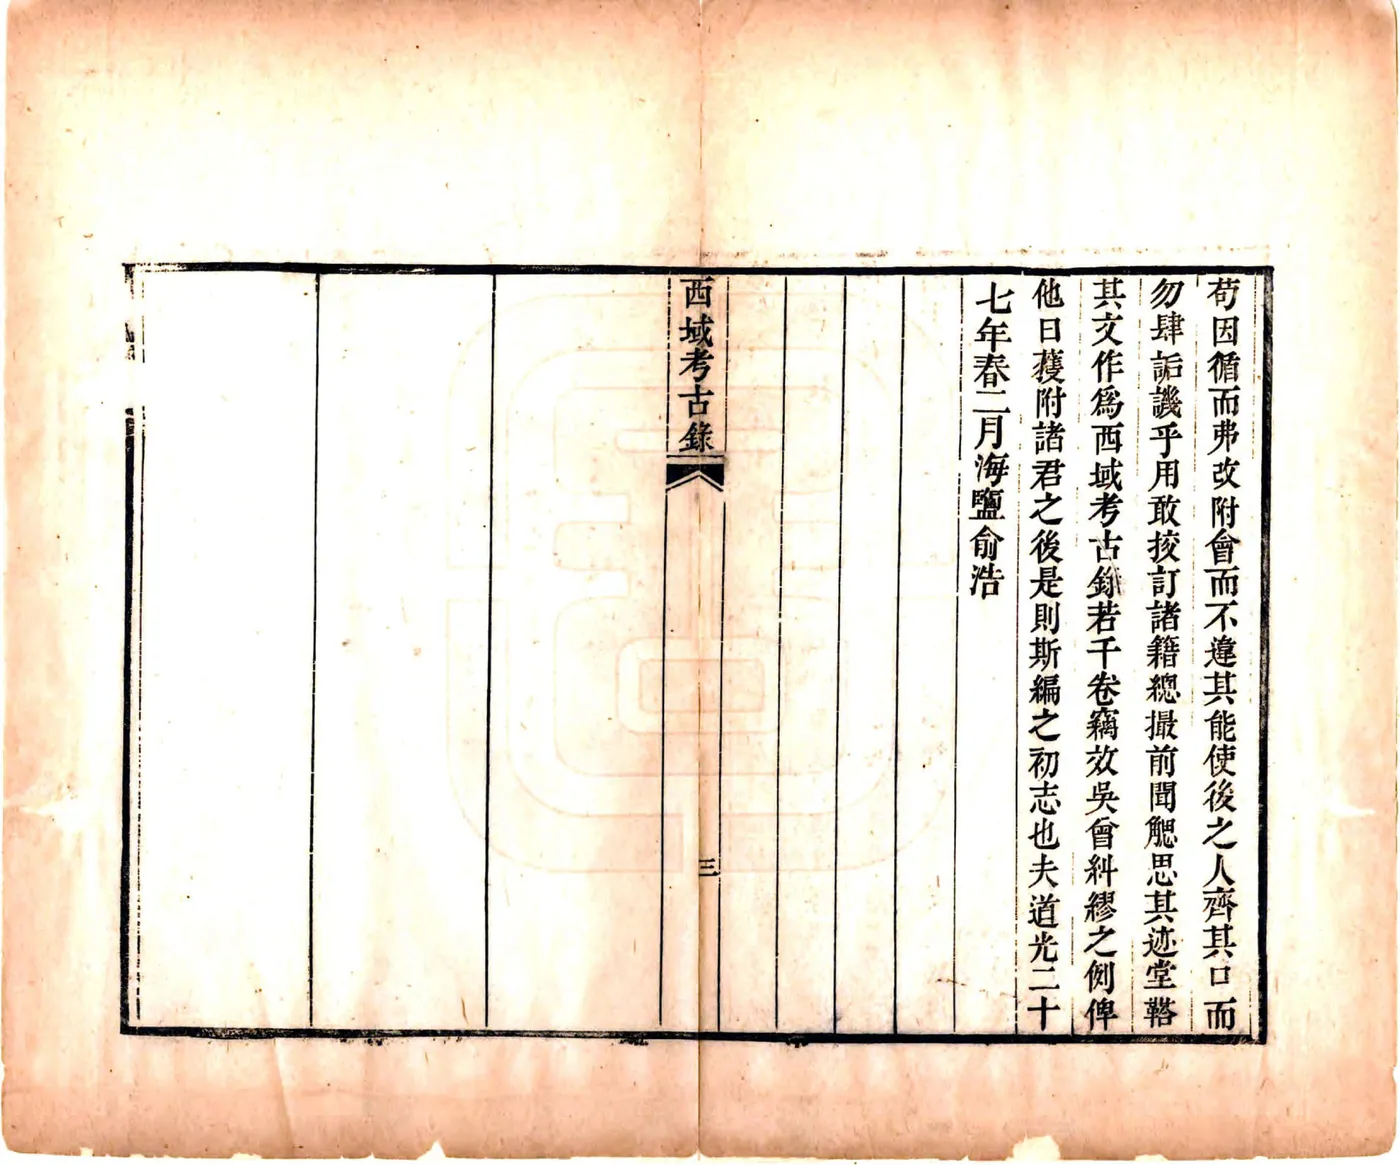 苟因循而弗改附會而不違其能使後之人齊其口而
勿肆詬譏乎用敢挍訂諸籍總撮前聞䚡思其迹堂鞳
其文作爲西域考古錄若干卷竊效吳曾糾繆之例俾
他日䕶附諸君之後是則斯編之初志也夫道光二十
七年春二月海鹽俞浩
西域考古錄
三